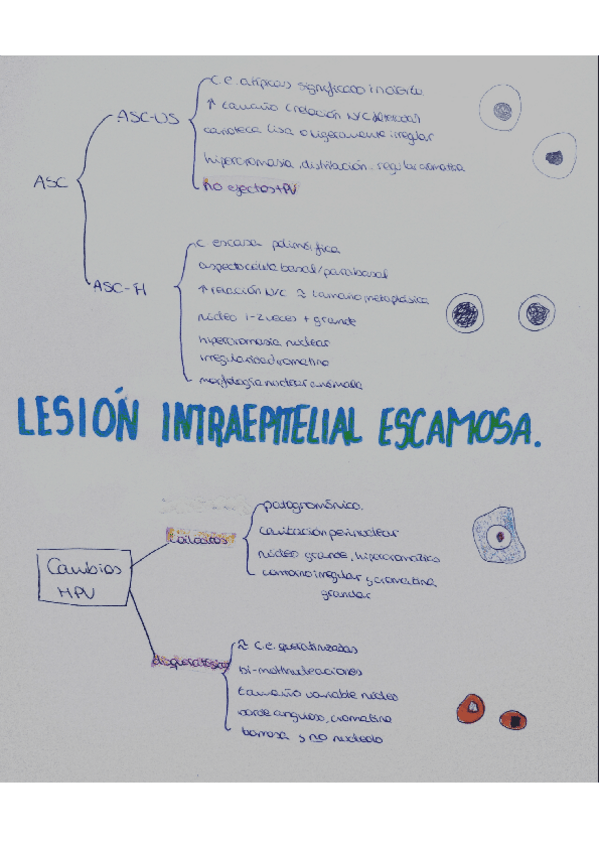 ASC
ASC-US
C.E. atípicas significado incierto.
↑ tamaño (relación N/C
carioteca lisa o ligeramente irregular
hipercromasia, distribución regular cromatina
no efectos HPV
ASC-H
C escasa polimórfica
aspecto célula basal/parabasal
↑ relación N/C ≈ tamaño metaplásica
núcleo 1-2 veces + grande
hipercromasia nuclear
irregularidad cromatina
morfología nuclear anómala
LESIÓN INTRAEPITELIAL ESCAMOSA.
Cambios
HPV
Coilocitos
patognomónico.
cavitación perinuclear
núcleo grande, hipercromático
contorno irregular y cromatina
granular
≈ C.E. queratinizadas
bi-multinucleaciones
tamaño variable núcleo
borde anguloso, cromatina
borrosa y no nucleolo